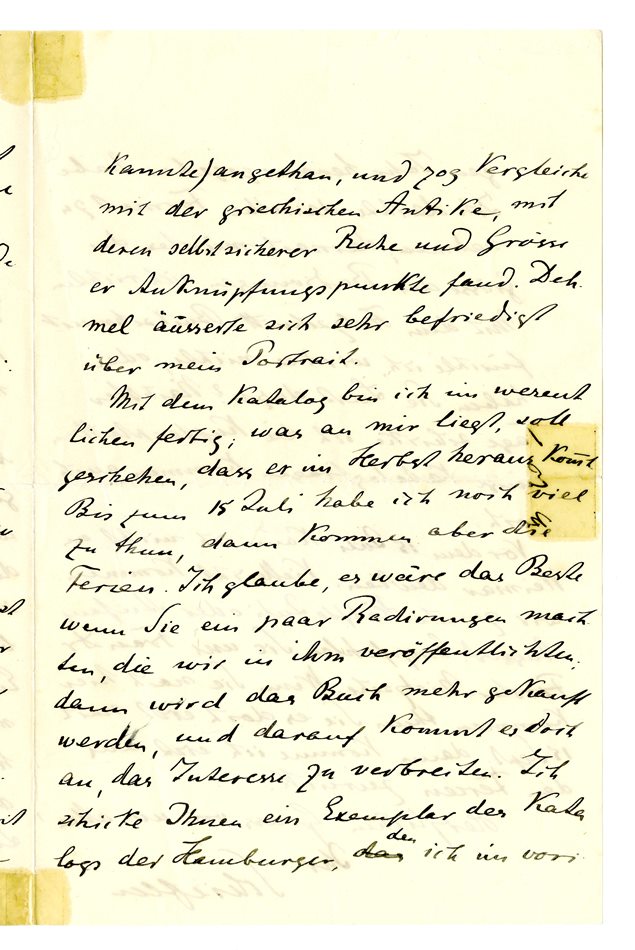 kannte) angethan, und zog Vergleiche
mit der griechischen Antike, mit
deren selbstsicherer Ruhe und Grösse
er Anknüpfungspunkte fand. Deh-
mel äusserte sich sehr befriedigt
über mein Portrait.
Mit dem Katalog bin ich im wesent
lichen fertig; was an mir liegt, soll
geschehen, dass er im Herbst heraus kommt
Bis zum 15 Juli habe ich noch viel
zu thun, dann kommen aber die
Ferien. Ich glaube, es wäre das Beste
wenn Sie ein paar Radirungen mach
ten, die wir in ihm veröffentlichten;
dann wird das Buch mehr gekauft
werden, und darauf kommt es doch
an, das Interesse zu verbreiten. Ich
schicke Ihnen ein Exemplar des Kata
logs der Hamburger, den ich im vori-